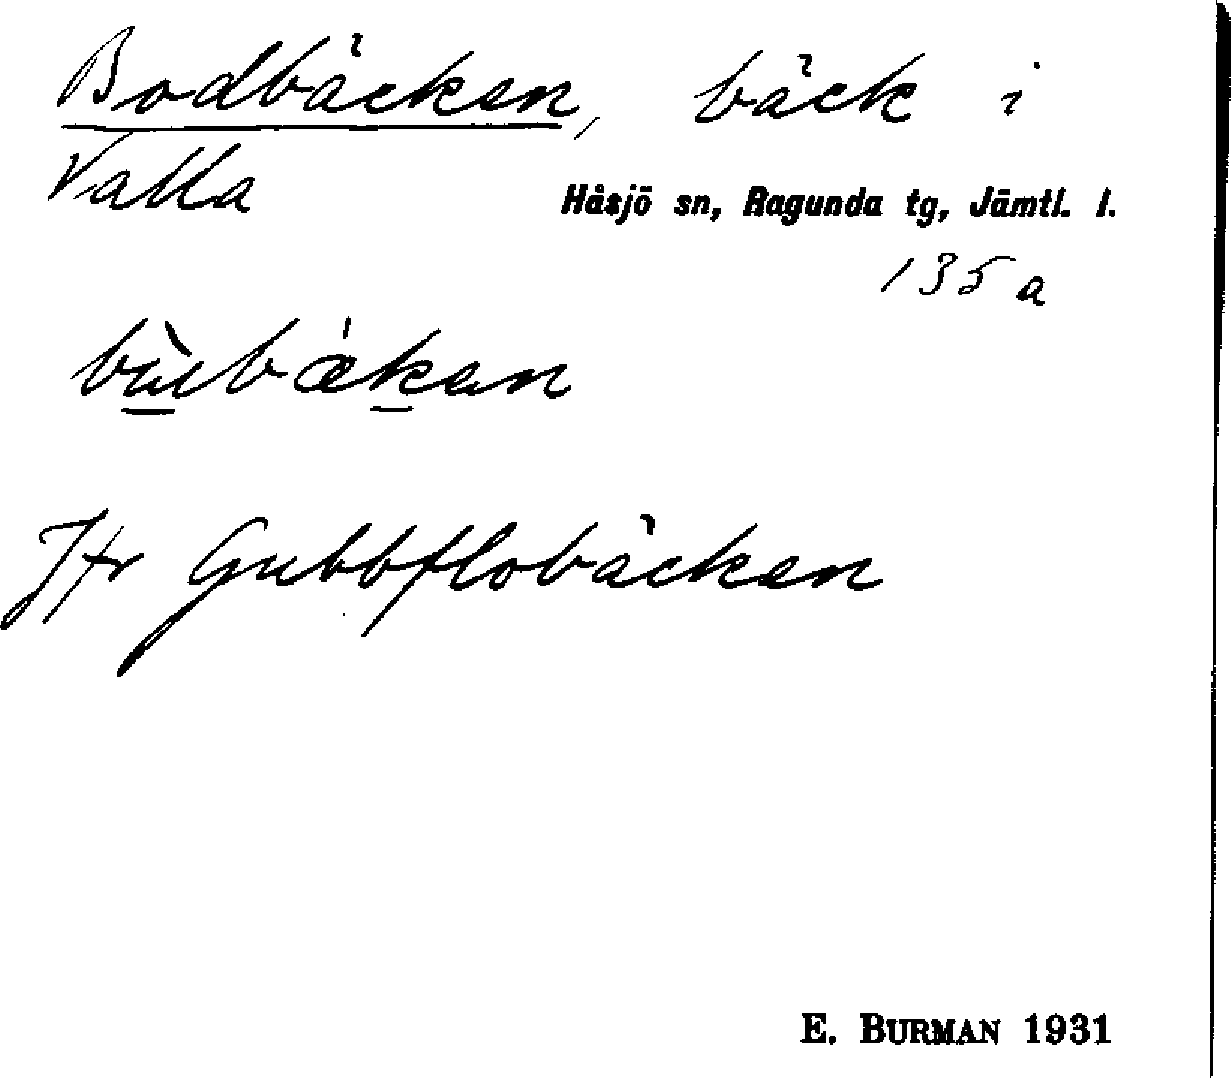 Bodbäcken, bäck i
Valla
Håsjö sn, Ragunda tg, Jämtl. l.
135 a
Jfr Gubbflobäcken
E. BURMAN 1931